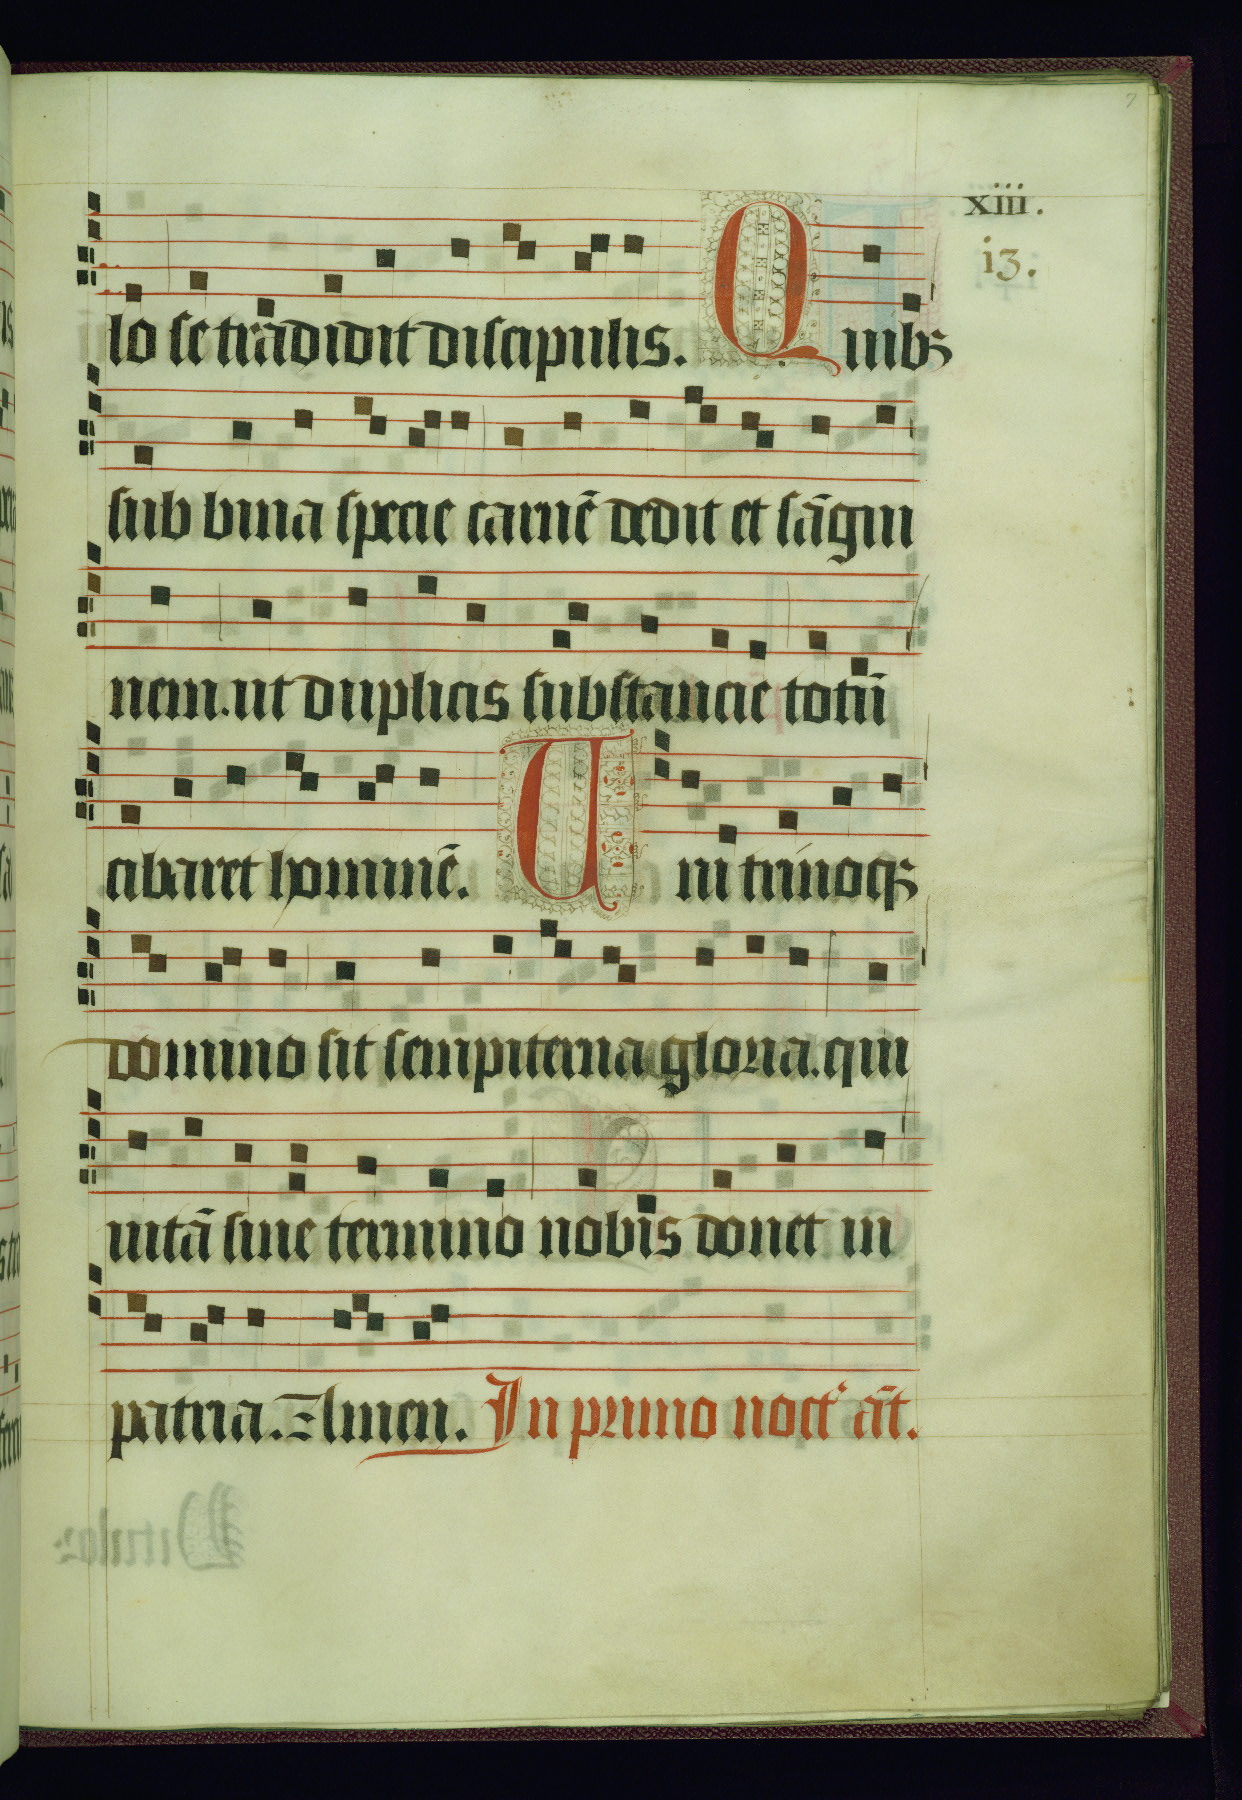 7
xiii.
i3.
lo se tradidit discipulis. Quibꝫ
sub bina specie carnē dedit et sāgui
nem.ut duplicis substancie totū
cibaret hominē. Uni trinoqꝫ
domino sit sempiterna gloria.qui
uitā sine termino nobis donet in
patria. Amen. In primo noct' āt.